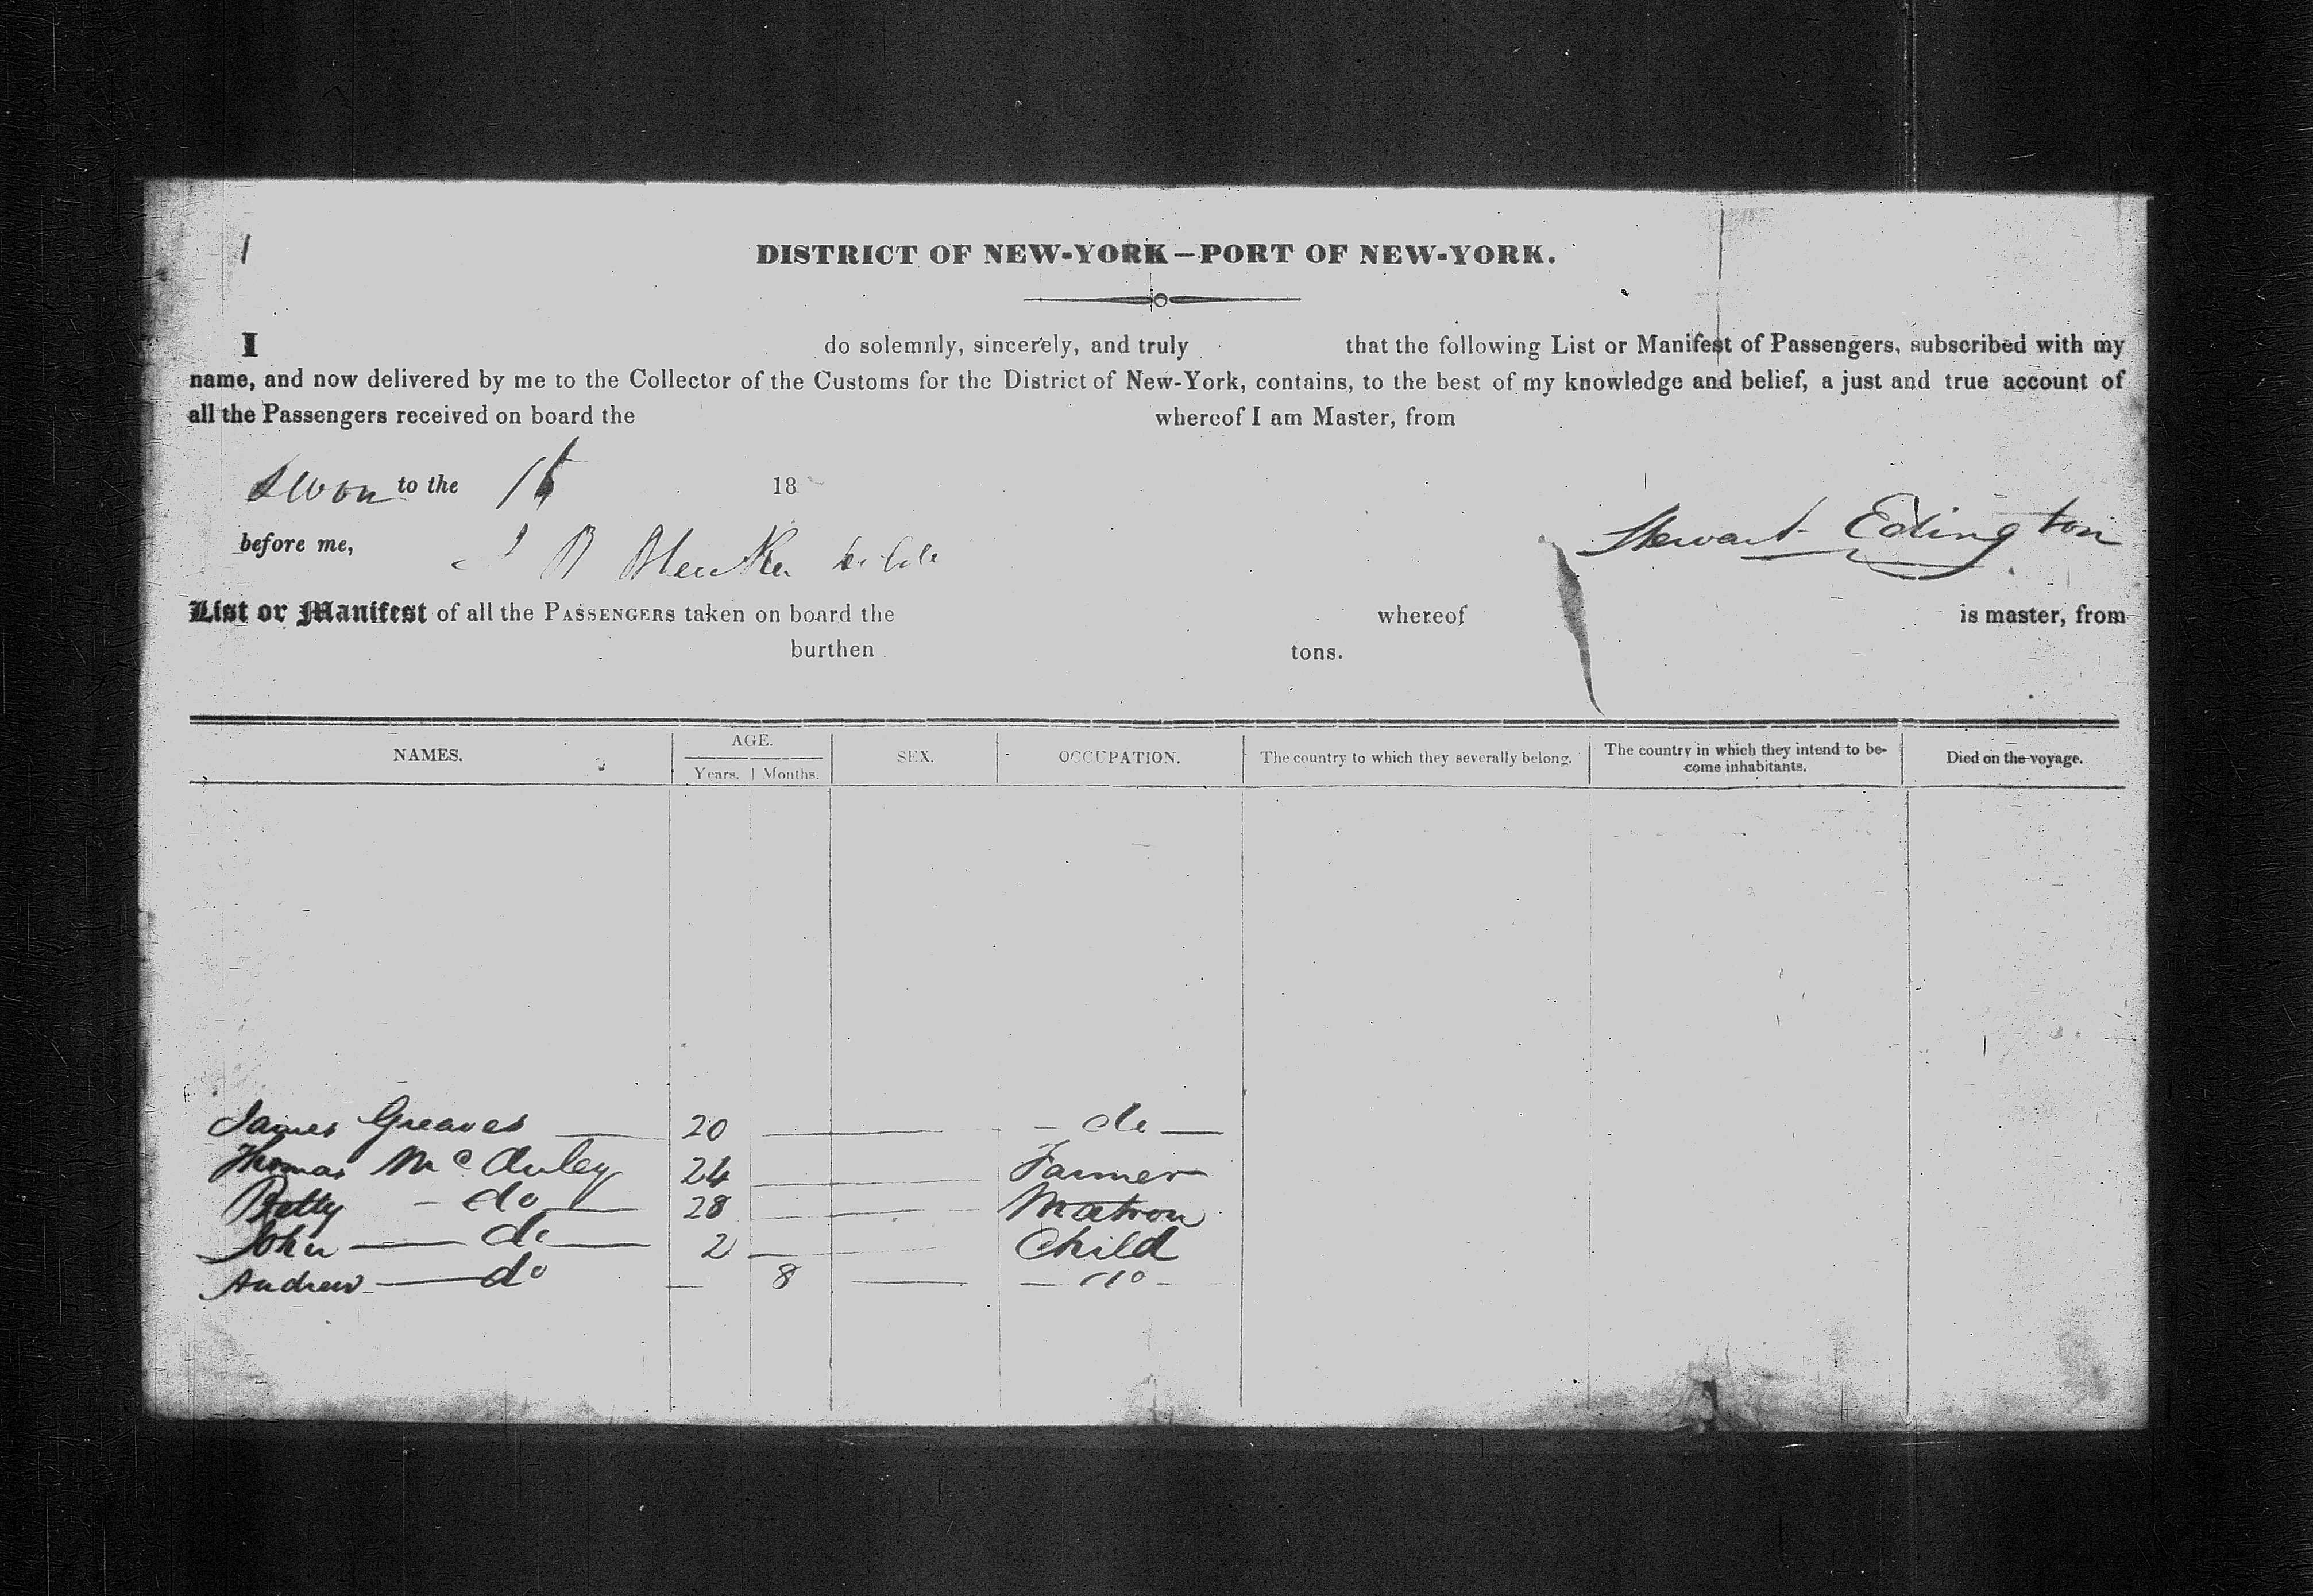 1
DISTRICT OF NEW-YORK—PORT OF NEW-YORK.
I do solemnly, sincerely, and truly that the following List or Manifest of Passengers, subscribed with my
name, and now delivered by me to the Collector of the Customs for the District of New-York, contains, to the best of my knowledge and belief, a just and true account of
all the Passengers received on board the whereof I am Master, from
Swon to the 18
before me,
Stewart Edington
List or Manifest of all the PASSENGERS taken on board the whereof is master, from
burthen tons.
NAMES. AGE. Years. Months. SEX. OCCUPATION. The country to which they severally belong. The country in which they intend to be-
come inhabitants. Died on the voyage.
James Greaves — 20 — do —
Thomas McAuley 24 — Farmer
Betty - do — 28 — Matron
John — do — 2 — Child
Andrew — do — 8 — - do -